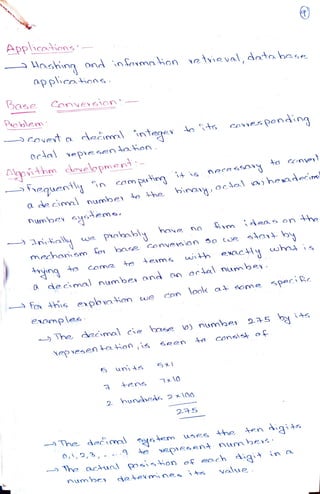 Applications:—
→ Hashing and information retrieval, database
applications.
Base Conversion:—
Problem:
→ Covert a decimal integer to its corresponding
octal representation.
Algorithm development:-
→ Frequently in computing it is necessary to convert
a decimal number to the binary, octal or hexadecimal
number systems.
→ Initially we probably have no firm ideas on the
mechanism for base conversion so we start by
trying to come to terms with exactly what is
a decimal number and an octal number.
→ For this exploration we can look at some specific
examples.
→ The decimal (ie base 10) number 275 by its
representation, is seen to consist of
5 units 5x1
7 tens 7x10
2 hundreds 2x100
275
→ The decimal system uses the ten digits
0,1,2,3,...9 to represent numbers.
→ The actual position of each digit in a
number determines its value.